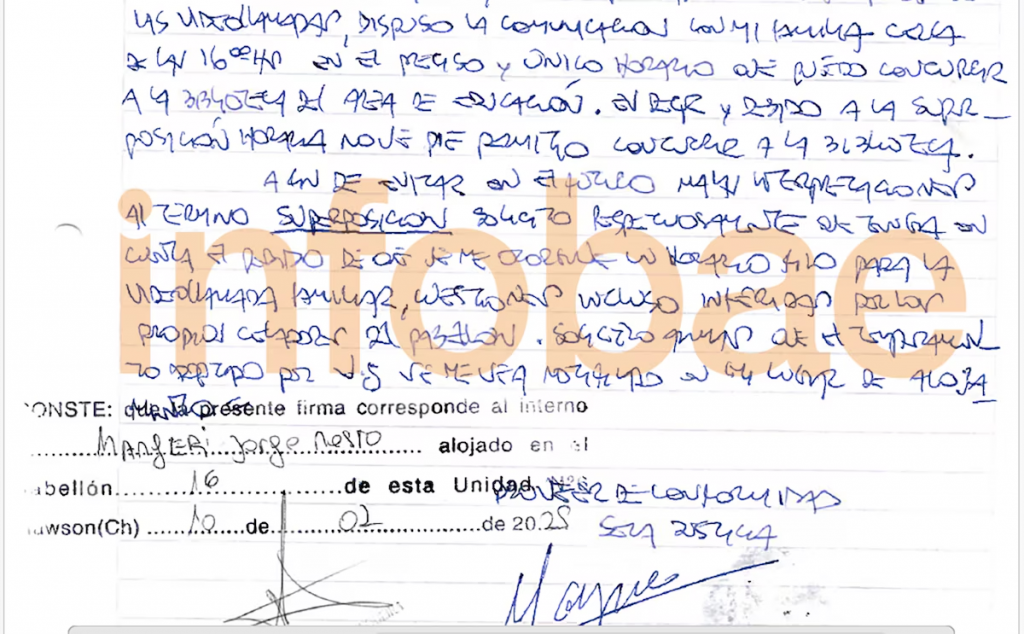 LAS VIDEOLLAMADAS, DISPUSO LA COMUNICACION CON MI FAMILIA CERCA
DE LAS 16:00 HS EN EL PRECISO Y UNICO HORARIO QUE PUEDO CONCURRIR
A LA BIBLIOTECA DEL AREA DE EDUCACIÓN. ES DECIR Y DEBIDO A LA SUPER_
POSICIÓN HORARIA NO SE ME PERMITIO CONCURRIR A LA BIBLIOTECA.
A FIN DE EVITAR EN EL FUTURO MALAS INTERPRETACIONES
AL TERMINO SUPERPOSICION SOLICITO RESPETUOSAMENTE SE TENGA EN
CUENTA EL PEDIDO DE QUE SE ME OTORGUE UN HORARIO FIJO PARA LA
VIDEOLLAMADA FAMILIAR, CUESTIONES INCLUSO REFERIDAS POR LOS
PROPIOS CELADORES DEL PABELLON. SOLICITO QUE EL TEMPERAMEN_
TO ADOPTADO POR UDS SE ME SEA NOTIFICADO EN MI LUGAR DE ALOJA
MIENTO
infobae
CONSTE: que la presente firma corresponde al interno
MANGERI Jorge Nestor alojado en el
abellón 16 de esta Unidad Nº6
PROVEER DE CONFORMIDAD
awson(Ch) 10 de 02 de 2025
SERA JUSTICIA